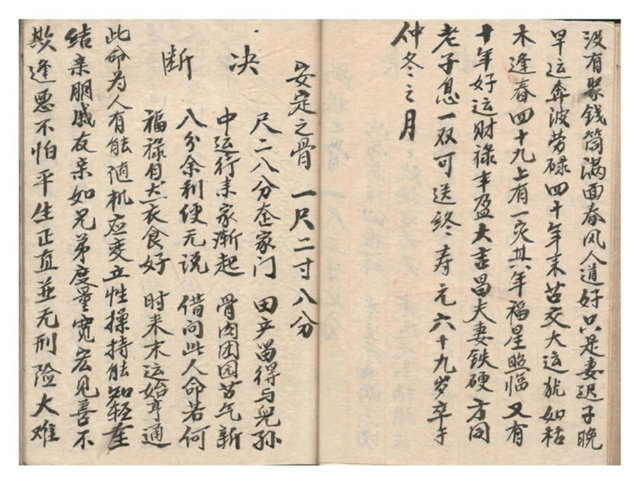 没有聚钱筒满面春风人道好只是妻迟子晚
早运奔波劳碌四十年来苦交大运犹如枯
木逢春四十九上有一灾其年福星照临又有
十年好运财禄丰盈大吉昌夫妻铁硬方同
老子息一双可送终寿元六十九岁卒于
仲冬之月
安定之骨 一尺二寸八分
决断
尺二八分家门 田产留得与儿孙
中运行来家渐起 骨肉团园苦气新
八分余利便无说 借问此人命若何
福禄自然衣食好 时来木运始亨通
此命为人有能随机应变立性操持能知轻重
结亲朋戚友亲如兄弟度量宽宏见善不
欺逢恶不怕平生正直並无刑险大难